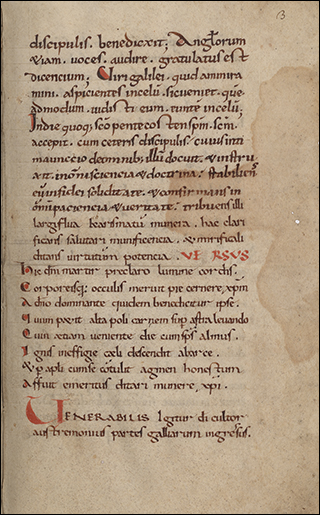 13
discipulis. benedixit; Anglorum
etiam. voces. audire. gratulatus est
dicentium; Viri galilei. quid ammira
mini. aspicientes in celū. sic veniet. que
admodum. vidistis eum. eunte in celū;
Inde quoq; scō pentecosten spm̄. scm̄.
accepit. cum ceteris discipulis.
de omnib; illū docuit. & instru
xit. in omni scientia & doctrina. stabilem
eū in fidei soliditate. & confirmans in
omni pacientia & veritate. tribuens illi
largiflua karismatū munera. hac clari
ficans salutari munificencia. & mirificali
ditans virtutum potencia. VERSUS
Hic dnī martir preclaro lumine cordis.
Corporeisq; occulis meruit pre cernere xpm
A dnō dominante quidem benedicitur ipse.
Quum peciit alta poli carnem sup astra levando
Cum etiam veniente die cum sps almus.
Ignis in effigie celi descendit ab arce.
& apli cum se cōtulit agmen honestum
Affuit emeritus ditari munere. xpi.
VENERABILIS Igitur di cultor
austremonius partes galliarum ingressus.